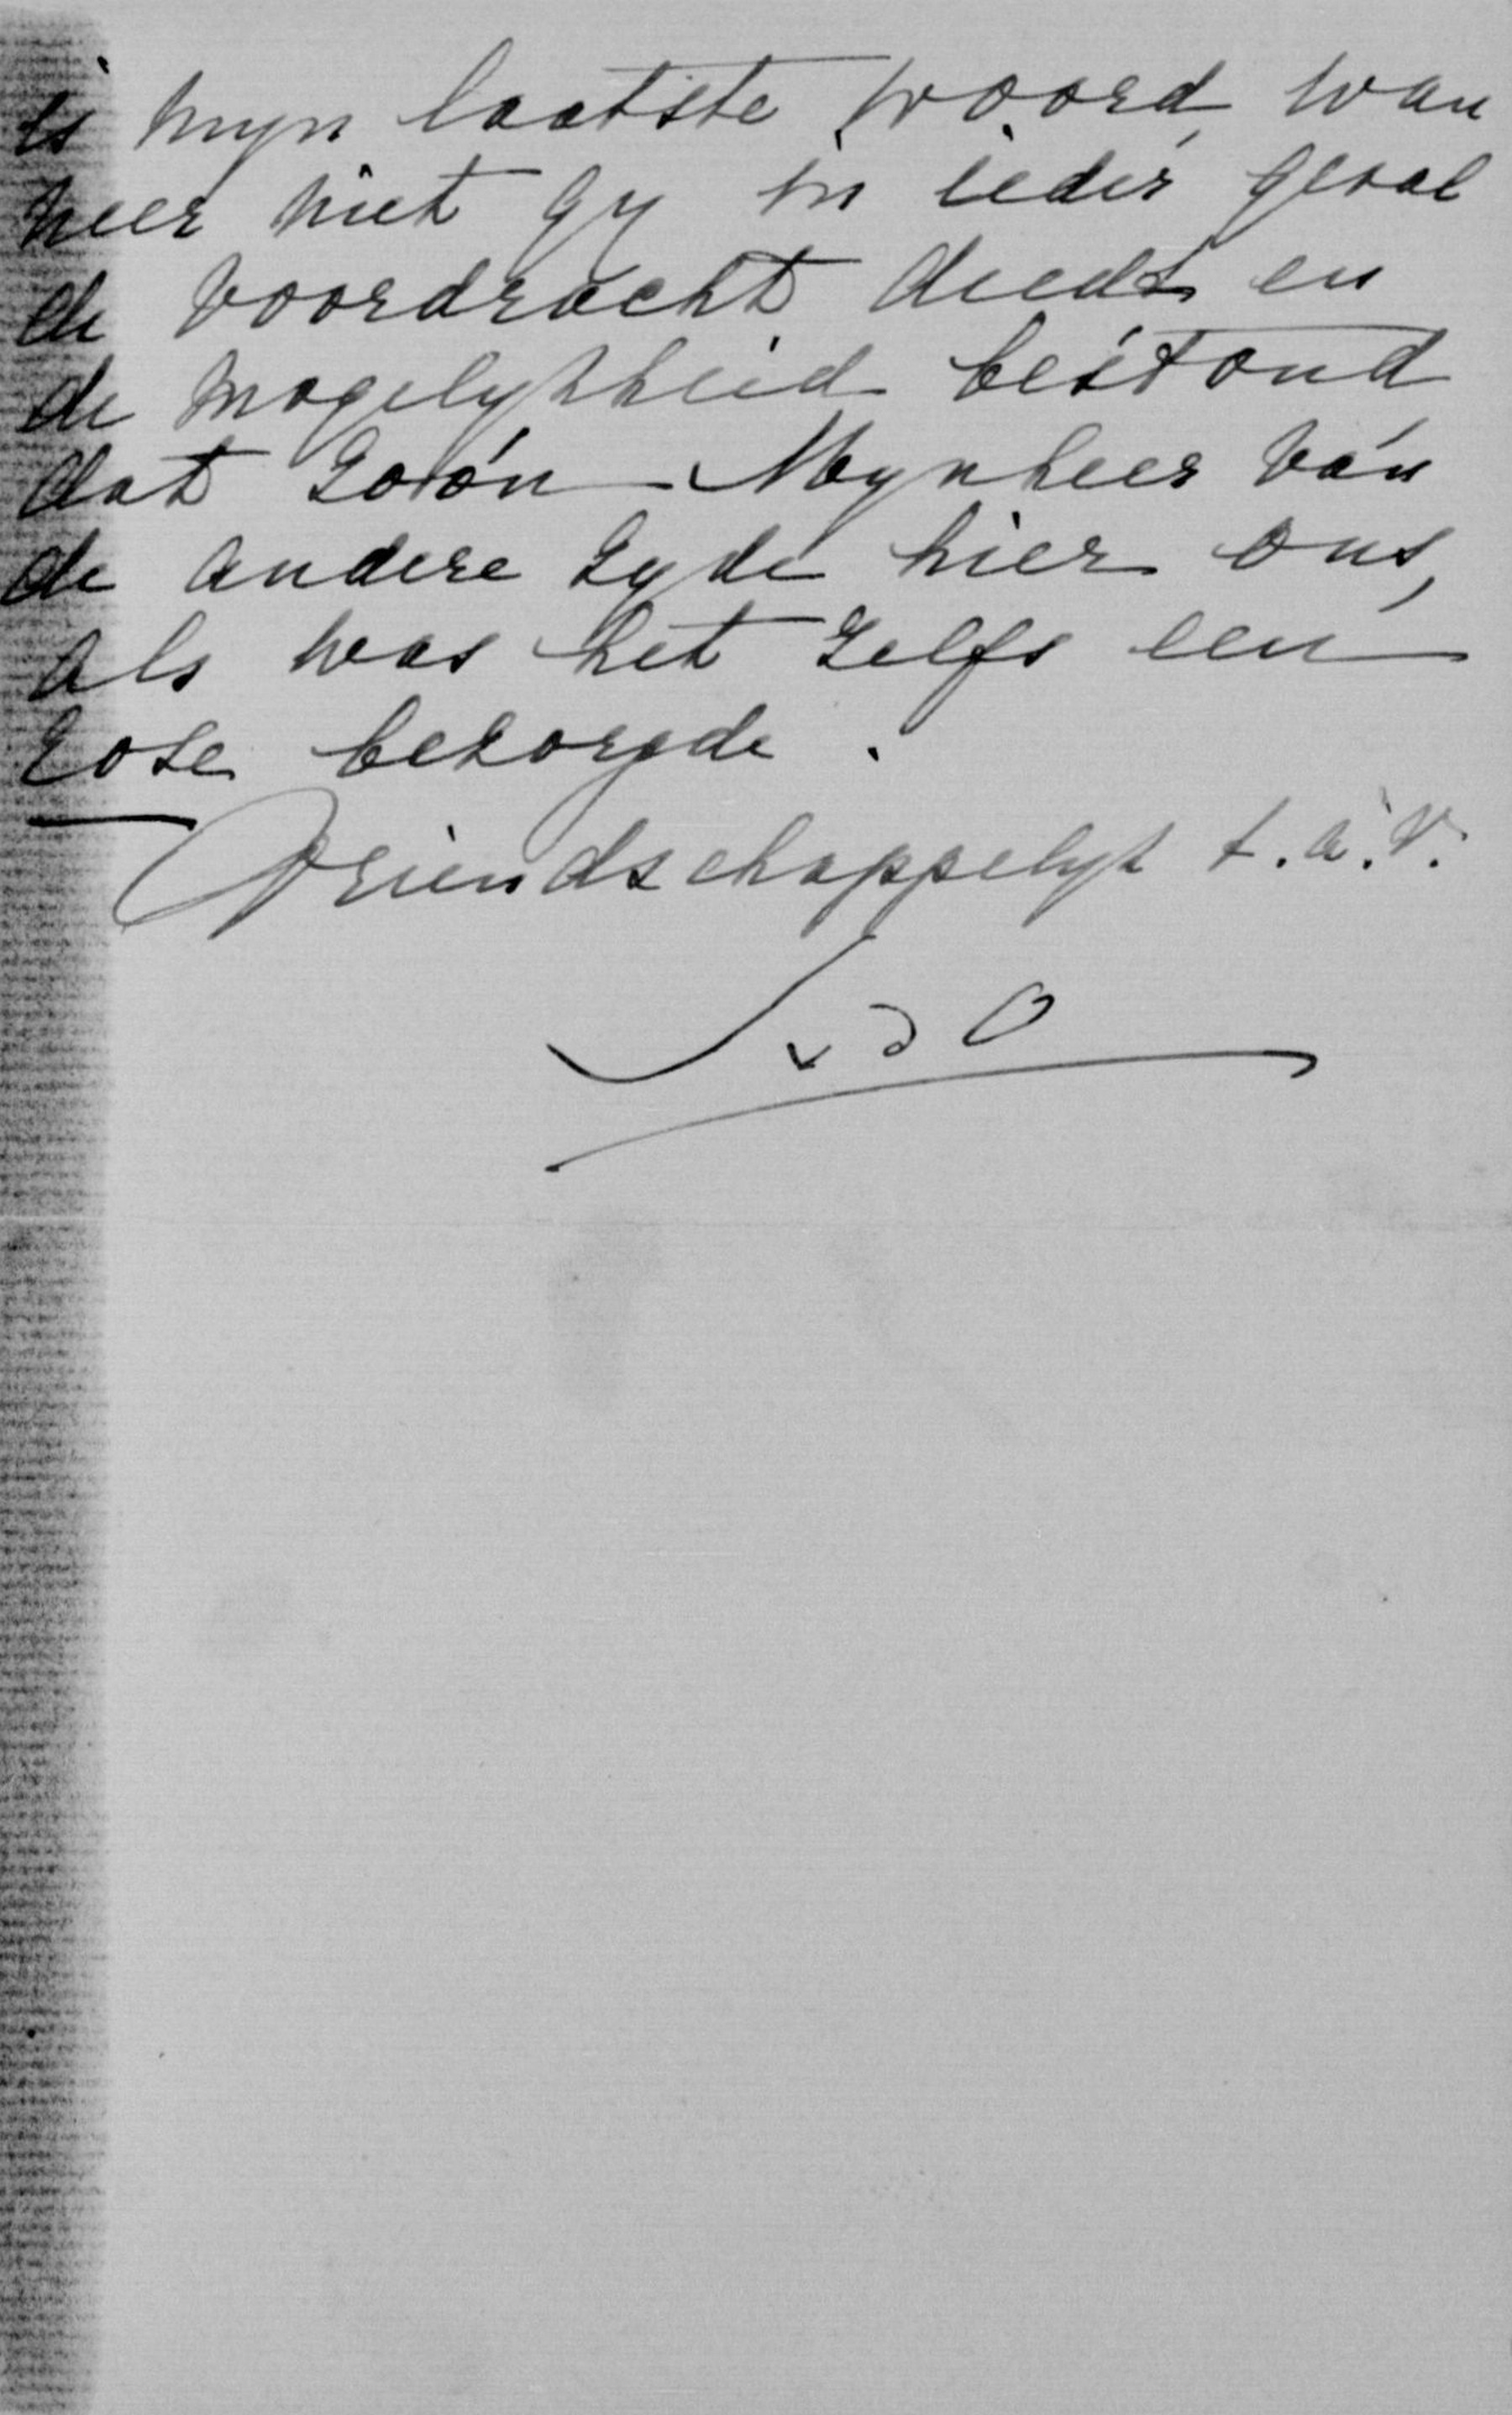 is myn laatste woord, wan
neer niet gy in ieder geval
de voordracht deedt en
de mogelykheid bestond
dat zoo'n Mynheer van
de andere zyde hier ons,
als was het zelfs een
bezorgde.
Vriendschappelyk t. à. v.
J v d O